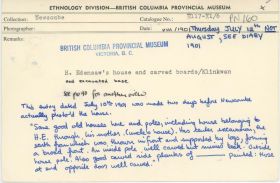 ETHNOLOGY DIVISION—BRITISH COLUMBIA PROVINCIAL MUSEUM
Collection: Newcombe
Catalogue No.: PN 160
Photographer:
Date: VIII/1901 Thursday July 12th Not
Remarks:
AUGUST, SEE DIARY
1901
BRITISH COLUMBIA PROVINCIAL MUSEUM
VICTORIA, B. C.
H. Edensaw's house and carved boards/Klinkwan
and excavated house
See for another view
This entry dated July 10th 1901 was made two days before Newcombe
actually photo'd the house.
"Some good old houses here and poles, including house belonging to
H.E. through his mother (uncle's house). Has centre excavation, the
earth from which was thrown in front and supported by logs, forming
a broad front. No inside pole well carved but moved back. Outside
house pole. Also good carved side planks of
painted. Nose
at end opposite door well carved."